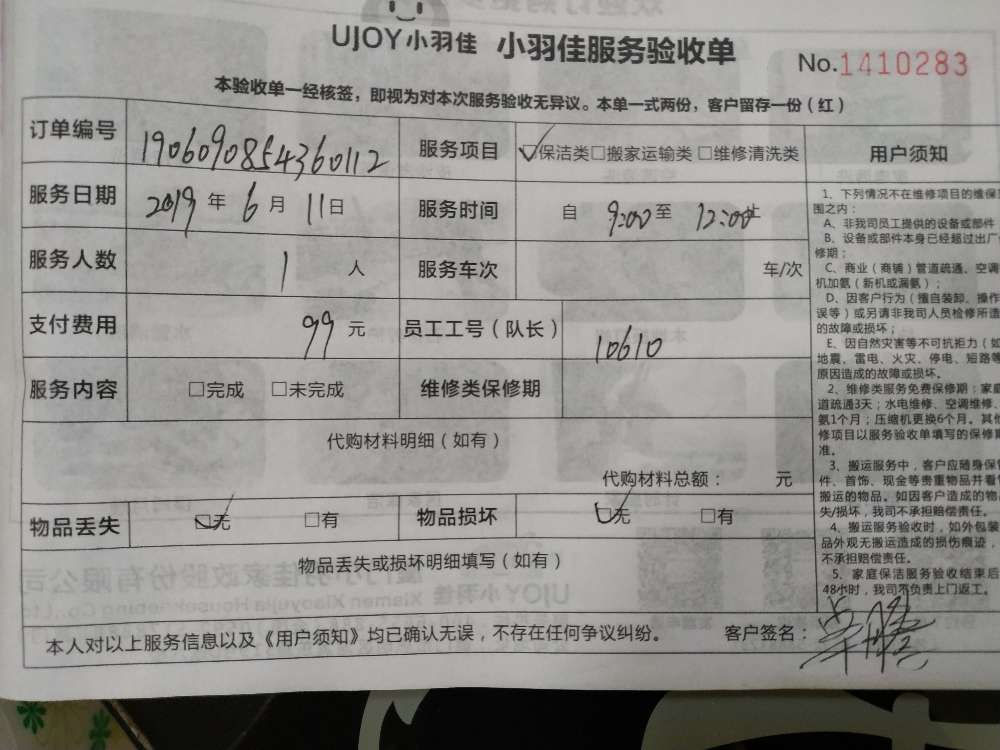 UJOY小羽佳 小羽佳服务验收单 No.1410283
本验收单一经核签，即视为对本次服务验收无异议。本单一式两份，客户留存一份（红）
订单编号 1906090854360112 服务项目 ☑保洁类□搬家运输类□维修清洗类 用户须知
服务日期 2019年6月11日 服务时间 自9:00至12:00止
服务人数 1人 服务车次 车/次
支付费用 99元 员工工号（队长） 10610
服务内容 □完成 □未完成 维修类保修期
代购材料明细（如有）
代购材料总额： 元
物品丢失 ☑无 □有 物品损坏 ☑无 □有
物品丢失或损坏明细填写（如有）
1、下列情况不在维修项目的维保
围之内：
A、非我司员工提供的设备或部件
B、设备或部件本身已经超过出厂
修期；
C、商业（商铺）管道疏通、空调
机加氨（新机或漏氨）；
D、因客户行为（擅自装卸、操作
误等）或另请非我司人员检修所造
的故障或损坏；
E、因自然灾害等不可抗拒力（如
地震、雷电、火灾、停电、短路等
原因造成的故障或损坏。
2、维修类服务免费保修期：家庭
道疏通3天；水电维修、空调维修、
氨1个月；压缩机更换6个月。其他
修项目以服务验收单填写的保修期
准。
3、搬运服务中，客户应随身保
件、首饰、现金等贵重物品并看
搬运的物品。如因客户造成的物
失/损坏，我司不承担赔偿责任。
4、搬运服务验收时，如外包装
品外观无搬运造成的损伤痕迹，
不承担赔偿责任。
5、家庭保洁服务验收结束后
48小时，我司不负责上门返工。
本人对以上服务信息以及《用户须知》均已确认无误，不存在任何争议纠纷。 客户签名：